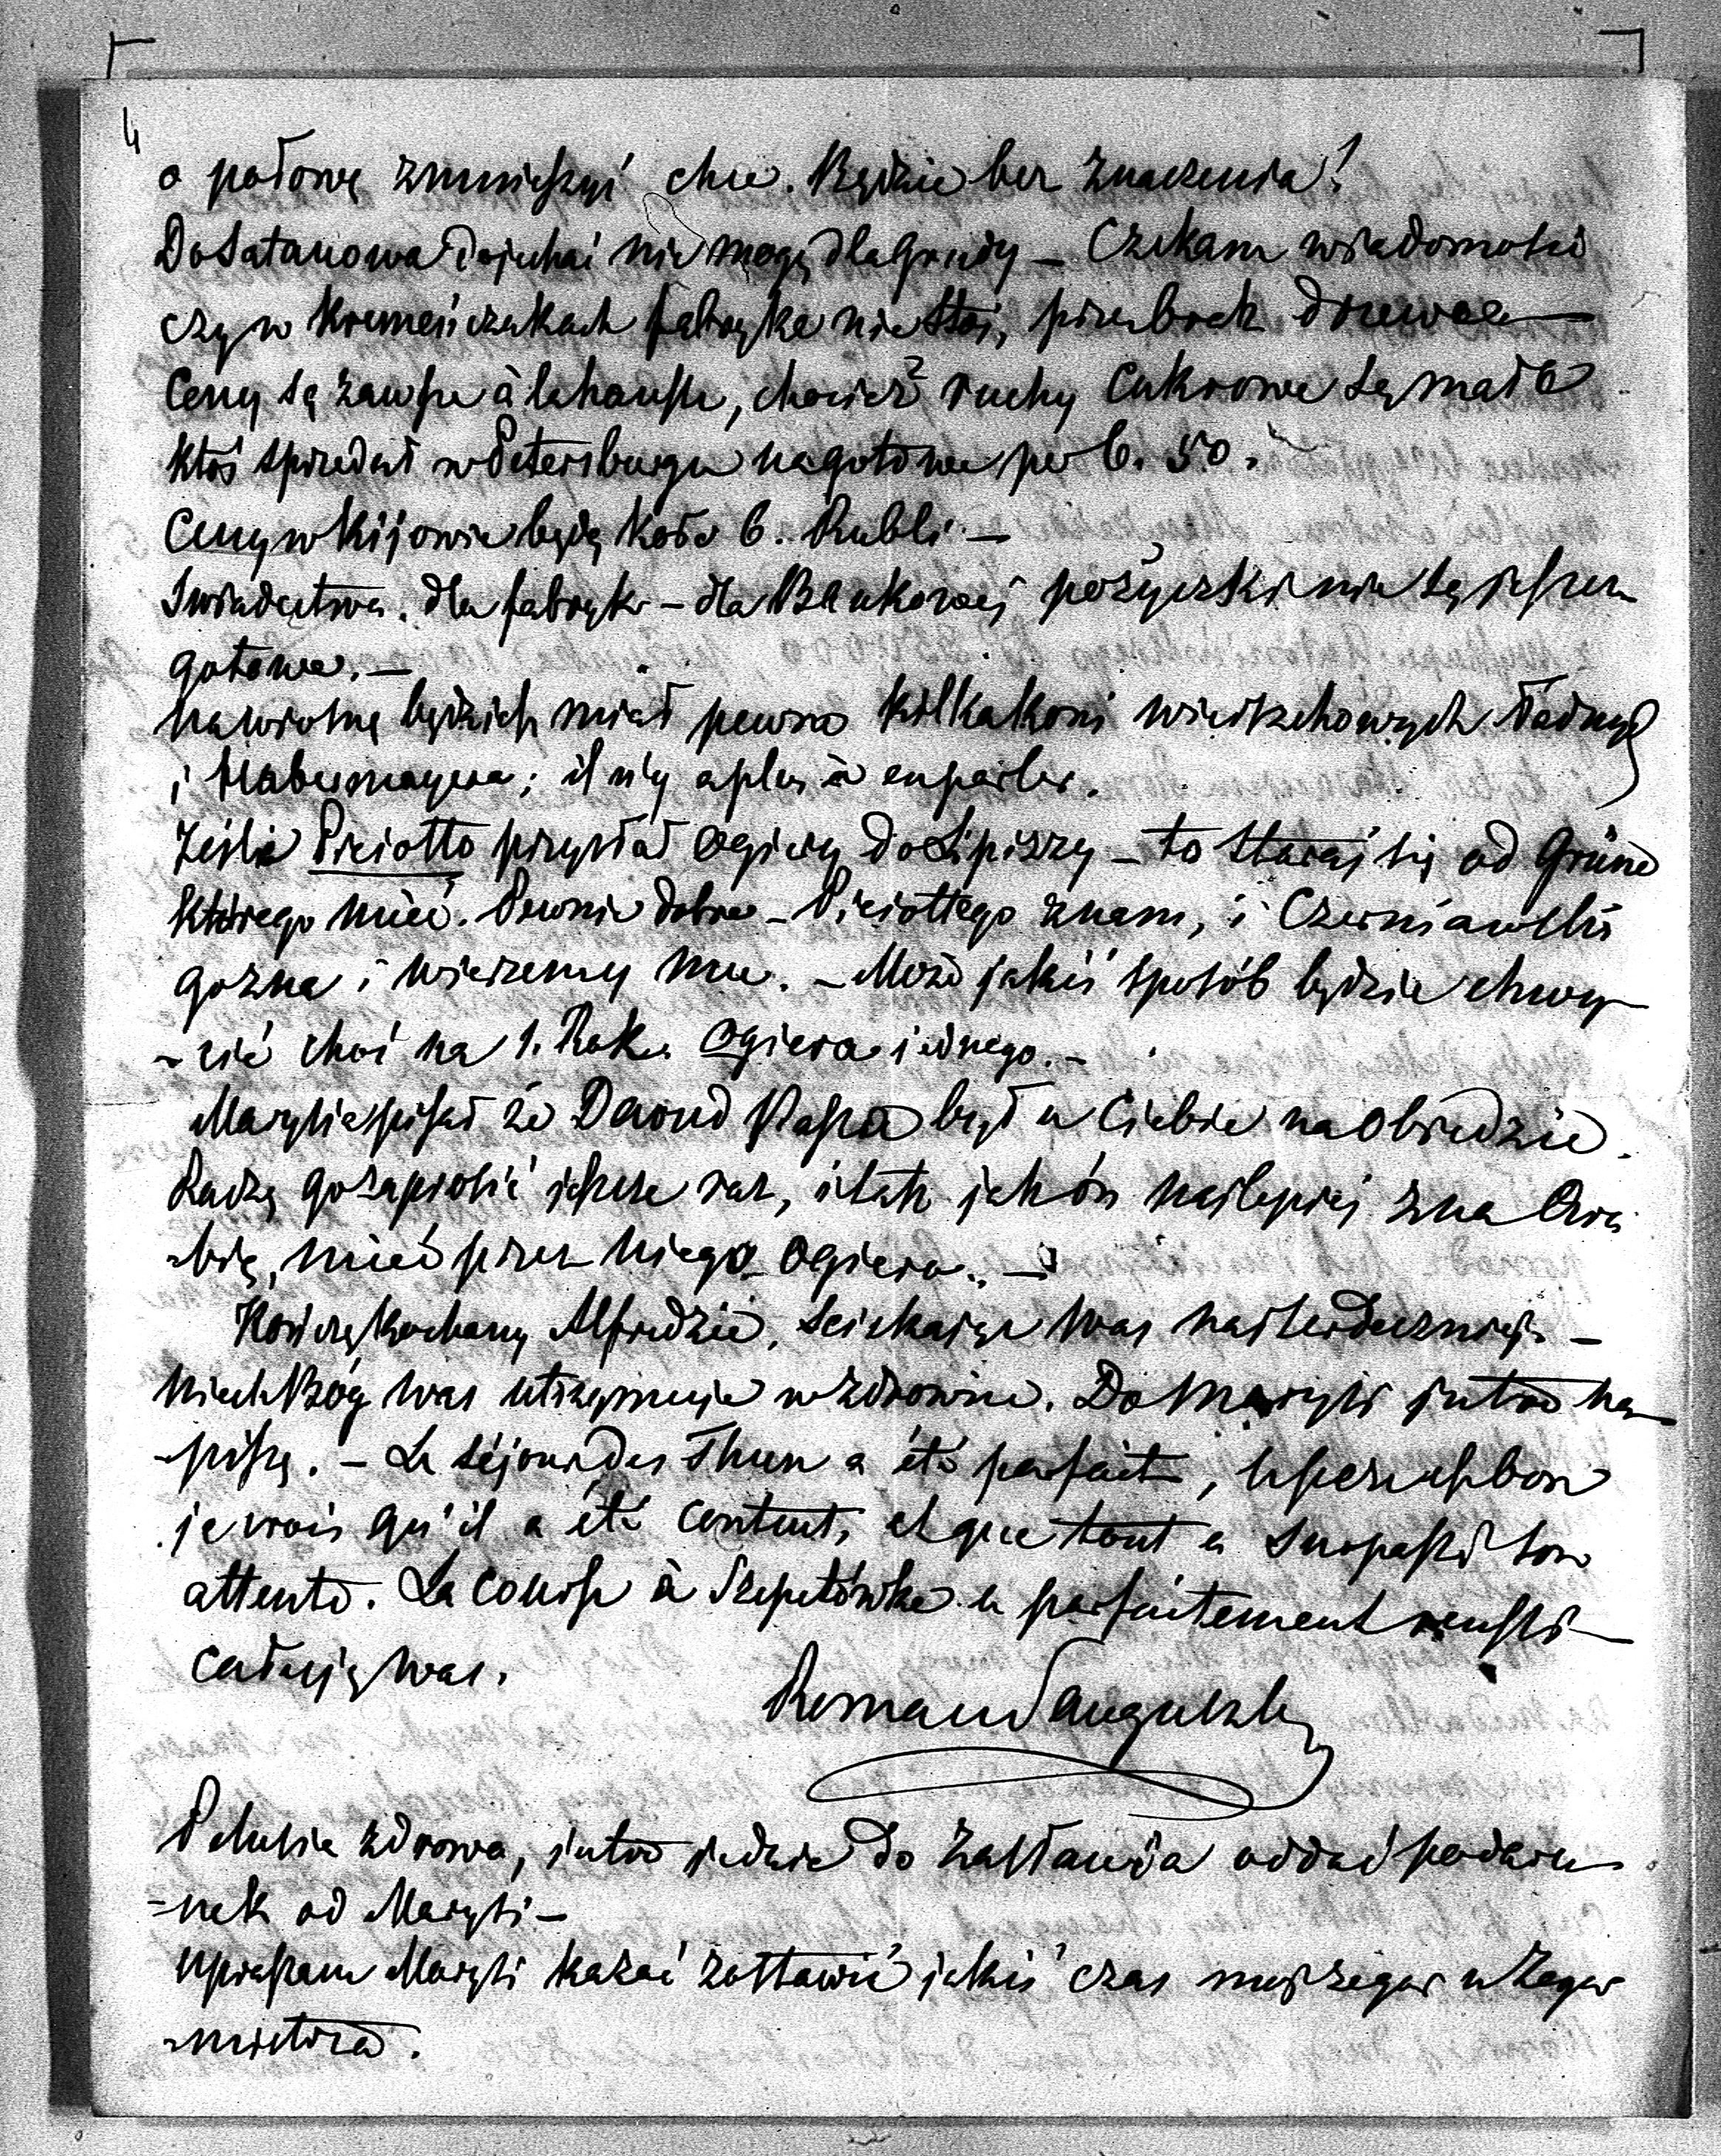 4
o połowę zmniejszyć chce. Będzie bez znaczenia!
Do Satanowa dojechać nie mogę dla Grudy – Czekam wiadomości
czy w Kremeńczukach fabryka nie stoi, przez brak drzewa –
Ceny są zawsze à la hausse, chociaż ruchy Cukrowe są małe
ktoś sprzedał w Petersburgu na gotowe po 6. 50.
Ceny w Kijowie będą koło 6. Rubli –
Świadectwa dla fabryk – dla Bankowej pożyczki nie są jeszcze
gotowe. –
Na wiosnę będziesz miał pewno kilka koni wierzchowych ładnych
i Habermayera; il n'y a plus à en parler.
Jeśli Piciotto przysłał Ogiery do Lipizzy – to staraj się od Grüne
którego mieć. Pewnie dobre – Piciottego znam, i Czerniawski
go zna i wierzemy mu. – Może jakiś sposób będzie chwy-
-cić choć na 1. Rok. Ogiera jednego. –
Marysia pisał że Daoud Pasza był u Ciebie na Obiedzie.
Radzę go zaprosić jeszcze raz, i tak jak ón najlepiej zna Ara
-bię, mieć przez niego Ogiera. –
Kończę kochany Alfredzie, ściskając Was najserdeczniej –
Niech Bóg Was utrzymuje w zdrowiu. Do Marysi jutro na-
-piszę. – Le séjour des Thun a été parfait,
je crois qu'il a été content, et que tout a surpassé son
attente. La course à Szepetówka a parfaitement reussi –
Całuję Was.
Roman Sanguszko
zdrowa, jutro jedzie do Zasławia oddać podaru-
=nek od Marysi –
Upraszam Marysi kazać zostawić jakiś czas mój zegar u Zegar
-mistrza.